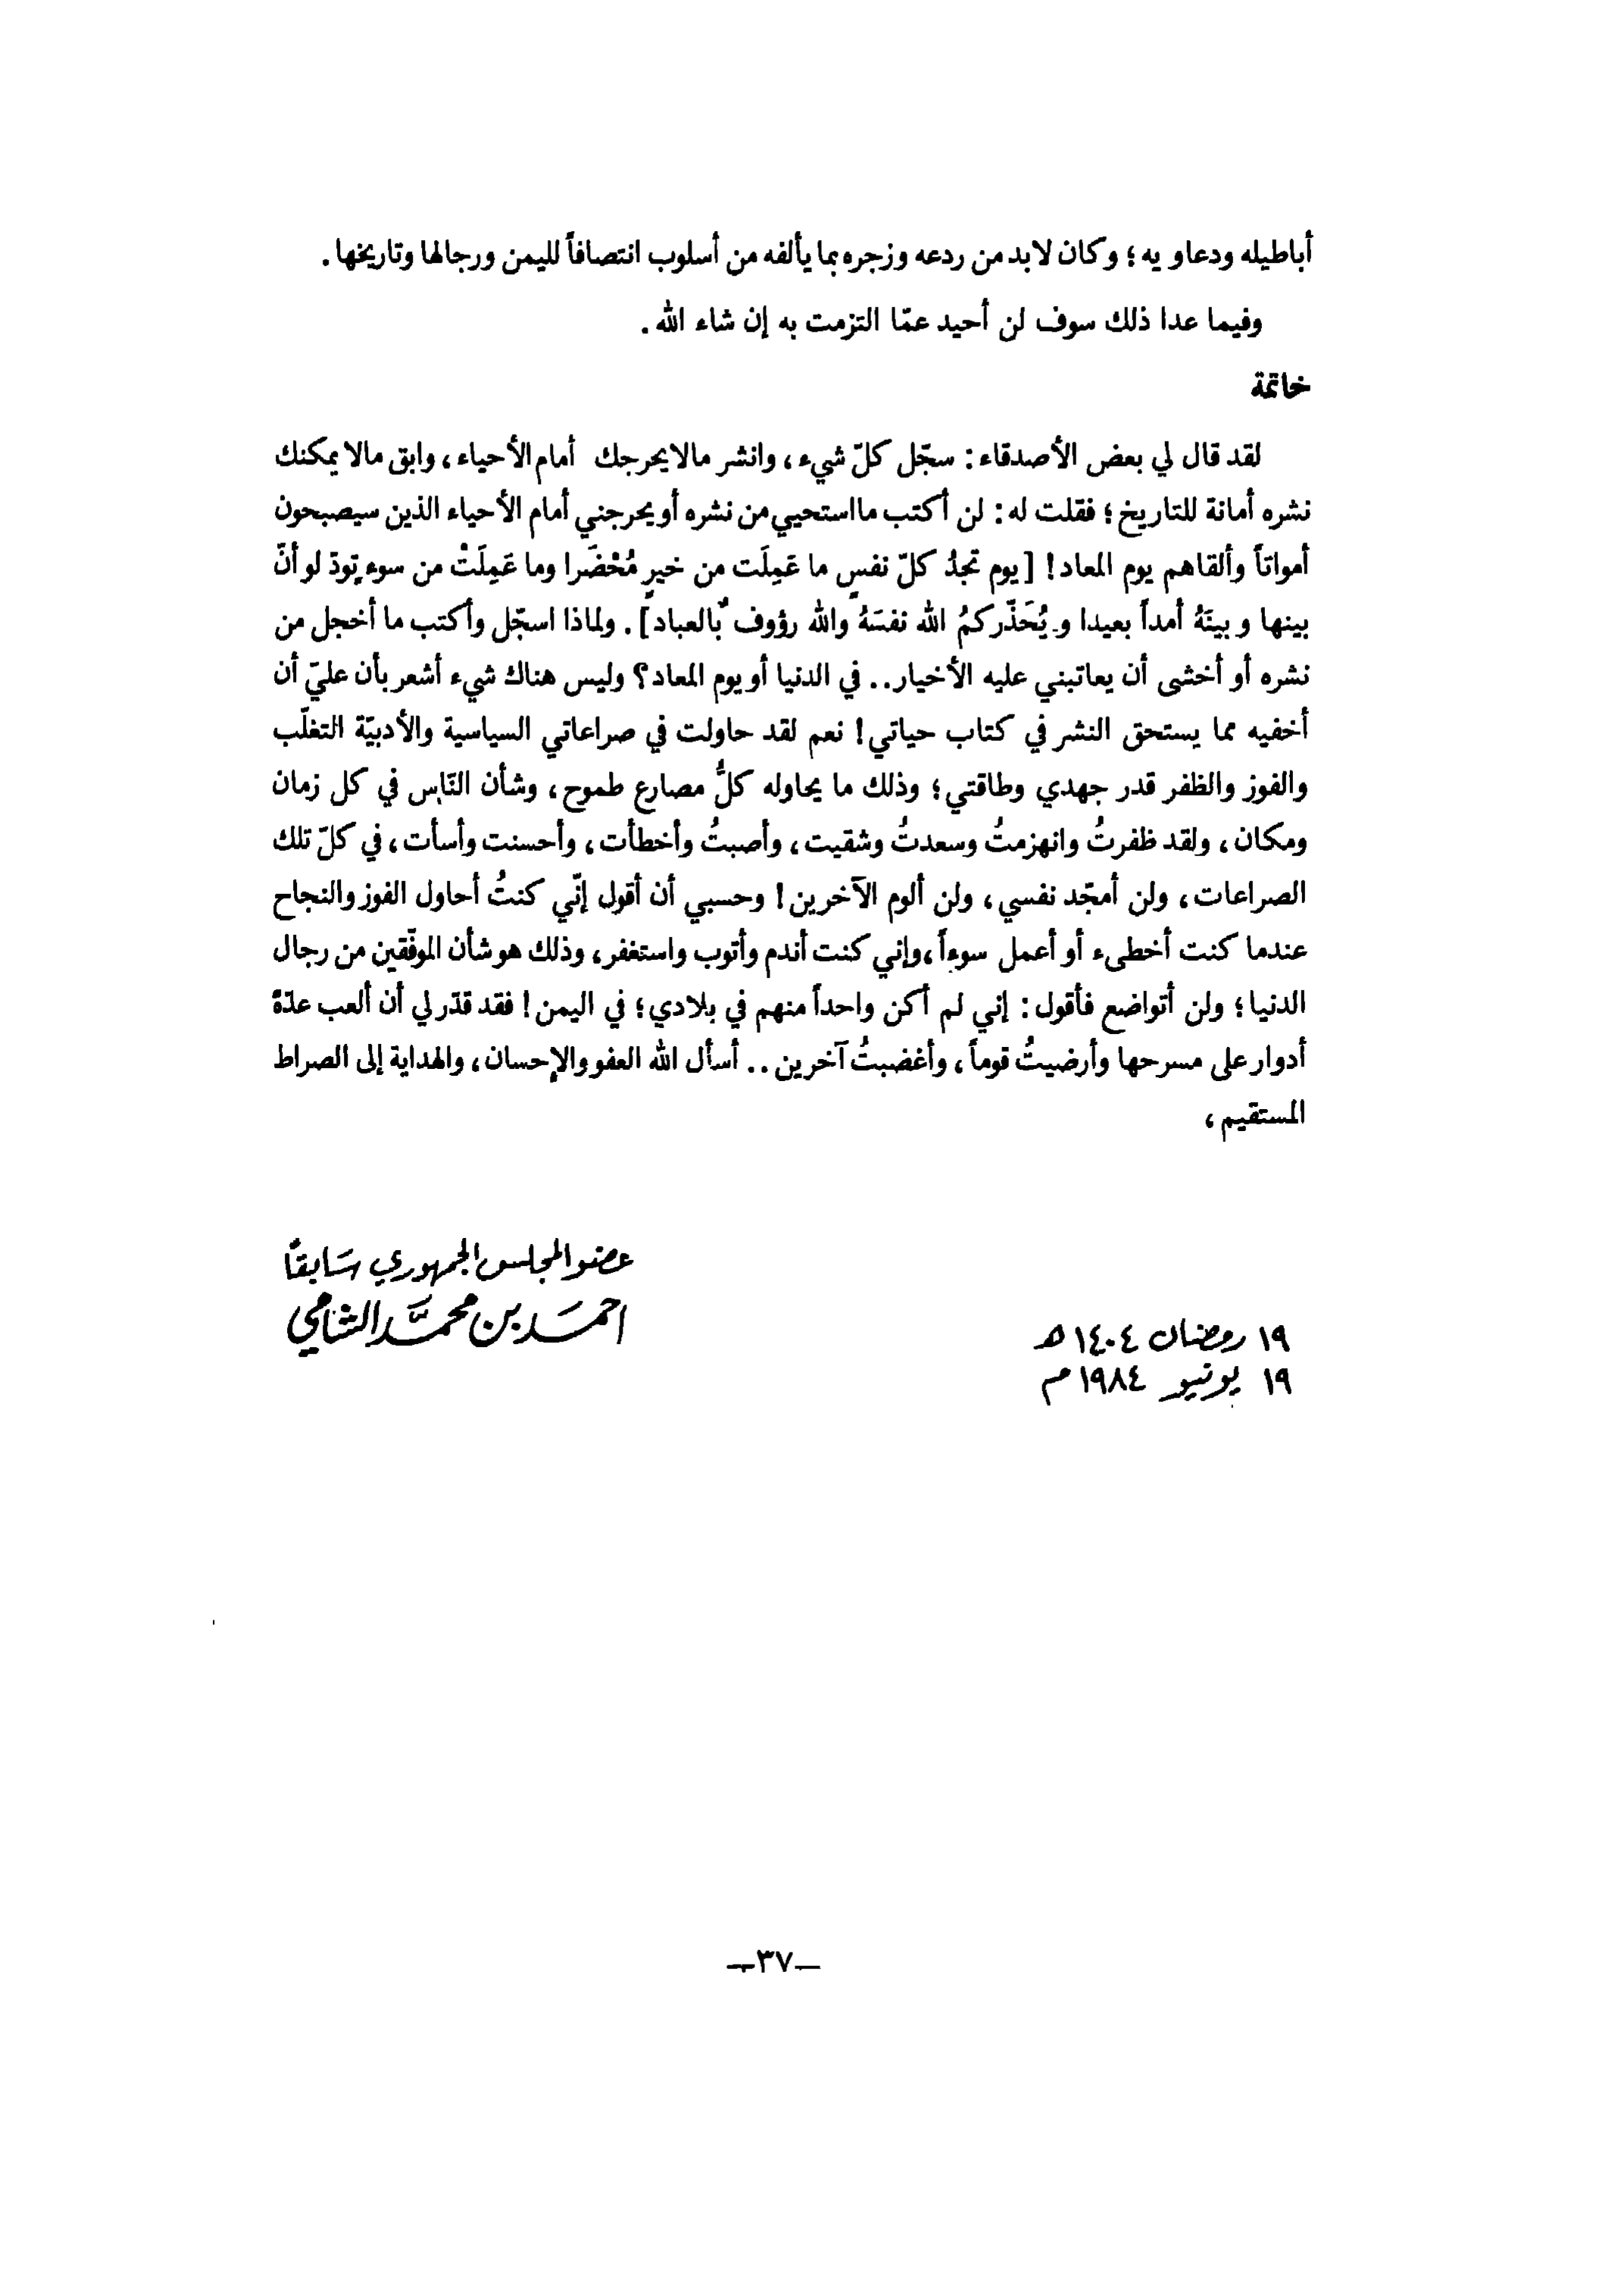 أباطيله ودعاويه ؛ وكان لابد من ردعه وزجره بما يألفه من أسلوب انتصافاً لليمن ورجالها وتاريخها .
وفيما عدا ذلك سوف لن أحيد عمّا التزمت به إن شاء الله .
خاتمة
لقد قال لي بعض الأصدقاء : سجّل كلّ شيء ، وانشر مالا يحرجك أمام الأحياء ، وابق مالا يمكنك
نشره أمانة للتاريخ ؛ فقلت له : لن أكتب ما استحيي من نشره أو يحرجني أمام الأحياء الذين سيصبحون
أمواتاً وألقاهم يوم المعاد ! [ يوم تجدُ كلّ نفسٍ ما عَمِلَت من خيرٍ مُحْضَرا وما عَمِلَتْ من سوءٍ تودّ لو أنّ
بينها وبينَهُ أمداً بعيدا ويُحَذّركمُ الله نفسَهُ والله رؤوفٌ بالعباد ] . ولماذا اسجّل وأكتب ما أخجل من
نشره أو أخشى أن يعاتبني عليه الأخيار .. في الدنيا أو يوم المعاد ؟ وليس هناك شيء أشعر بأن عليّ أن
أخفيه مما يستحق النشر في كتاب حياتي ! نعم لقد حاولت في صراعاتي السياسية والأدبيّة التغلّب
والفوز والظفر قدر جهدي وطاقتي ؛ وذلك ما يحاوله كلُّ مصارع طموح ، وشأن النّاس في كل زمان
ومكان ، ولقد ظفرتُ وانهزمتُ وسعدتُ وشقيت ، وأصبتُ وأخطأت ، وأحسنت وأسأت ، في كلّ تلك
الصراعات ، ولن أمجّد نفسي ، ولن ألوم الآخرين ! وحسبي أن أقول إنّي كنتُ أحاول الفوز والنجاح
عندما كنت أخطىء أو أعمل سوءاً ، وإني كنت أندم وأتوب واستغفر ، وذلك هو شأن الموفّقين من رجال
الدنيا ؛ ولن أتواضع فأقول : إني لم أكن واحداً منهم في بلادي ؛ في اليمن ! فقد قدّر لي أن ألعب عدّة
أدوار على مسرحها وأرضيتُ قوماً ، وأغضبتُ آخرين .. أسأل الله العفو والإحسان ، والهداية إلى الصراط
المستقيم ،
عضو المجلس الجمهوري سَابقاً
احمَد بن محمَّد الشامي
١٩ رمضان ١٤٠٤ هـ
١٩ يونيو ١٩٨٤ م
—٣٧—